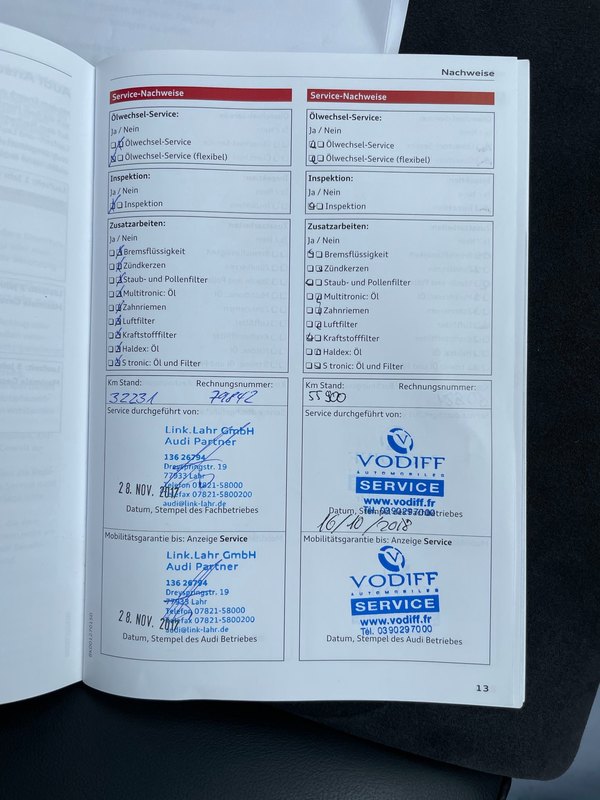 Nachweise
Service-Nachweise
Ölwechsel-Service:
Ja / Nein
Ölwechsel-Service
Ölwechsel-Service (flexibel)
Inspektion:
Ja / Nein
Inspektion
Zusatzarbeiten:
Ja / Nein
Bremsflüssigkeit
Zündkerzen
Staub- und Pollenfilter
Multitronic: Öl
Zahnriemen
Luftfilter
Kraftstofffilter
Haldex: Öl
S tronic: Öl und Filter
Km Stand: Rechnungsnummer:
32231 79142
Service durchgeführt von:
Link.Lahr GmbH
Audi Partner
136 26794
Dreyspringstr. 19
77933 Lahr
Telefon 07821-58000
Telefax 07821-5800200
audi@link-lahr.de
28. NOV. 2017
Datum, Stempel des Fachbetriebes
Mobilitätsgarantie bis: Anzeige Service
Link.Lahr GmbH
Audi Partner
136 26794
Dreyspringstr. 19
77933 Lahr
Telefon 07821-58000
Telefax 07821-5800200
audi@link-lahr.de
28. NOV. 2017
Datum, Stempel des Audi Betriebes
Service-Nachweise
Ölwechsel-Service:
Ja / Nein
Ölwechsel-Service
Ölwechsel-Service (flexibel)
Inspektion:
Ja / Nein
Inspektion
Zusatzarbeiten:
Ja / Nein
Bremsflüssigkeit
Zündkerzen
Staub- und Pollenfilter
Multitronic: Öl
Zahnriemen
Luftfilter
Kraftstofffilter
Haldex: Öl
S tronic: Öl und Filter
Km Stand: Rechnungsnummer:
55900
Service durchgeführt von:
VODIFF
AUTOMOBILES
SERVICE
www.vodiff.fr
Tél. 0390297000
Datum, Stempel des Fachbetriebes
16/10/2018
Mobilitätsgarantie bis: Anzeige Service
VODIFF
AUTOMOBILES
SERVICE
www.vodiff.fr
Tél. 0390297000
Datum, Stempel des Audi Betriebes
13